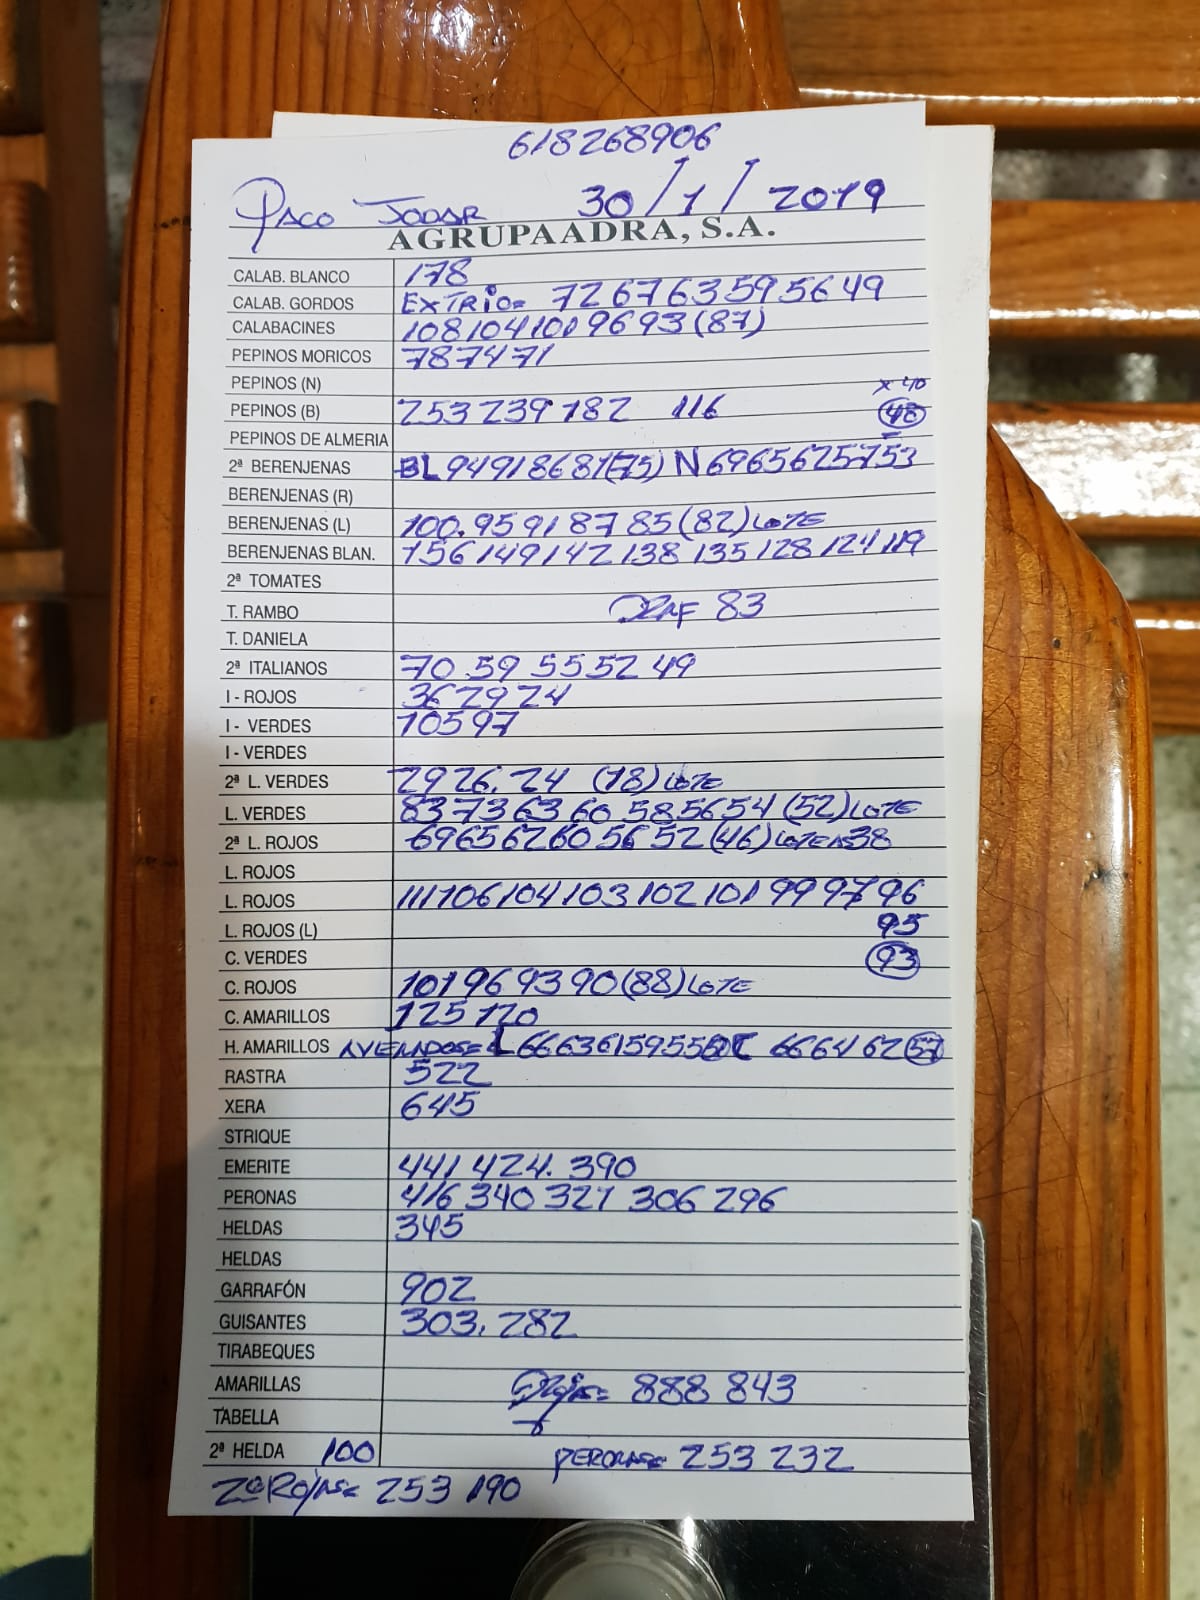 618268906
PACO JODAR 30/1/2019
AGRUPAADRA, S.A.
CALAB. BLANCO 178
CALAB. GORDOS EXTRIO= 72 67 63 59 56 49
CALABACINES 108 104 101 96 93 (87)
PEPINOS MORICOS 78 74 71
PEPINOS (N) x 40
PEPINOS (B) 253 239 182 116 48
PEPINOS DE ALMERIA
2ª BERENJENAS BL 94 91 86 81 (75) N 69 65 62 57 53
BERENJENAS (R)
BERENJENAS (L) 100. 95 91 87 85 (82) LOTE
BERENJENAS BLAN. 156 149 142 138 135 128 124 119
2ª TOMATES
T. RAMBO RAF 83
T. DANIELA
2ª ITALIANOS 70 59 55 52 49
I - ROJOS 36 29 24
I - VERDES 105 97
I - VERDES
2ª L. VERDES 29 26. 24 (18) LOTE
L. VERDES 83 73 63 60 58 56 54 (52) LOTE
2ª L. ROJOS 69 65 62 60 56 52 (46) LOTE 38
L. ROJOS
L. ROJOS 111 106 104 103 102 101 99 97 96
L. ROJOS (L) 95
C. VERDES 93
C. ROJOS 101 96 93 90 (88) LOTE
C. AMARILLOS 125 120
H. AMARILLOS L 66 63 61 59 55 C 66 64 62 57
RASTRA 522
XERA 645
STRIQUE
EMERITE 441 424. 390
PERONAS 416 340 321 306 296
HELDAS 345
HELDAS
GARRAFÓN 902
GUISANTES 303. 282
TIRABEQUES
AMARILLAS 888 843
TABELLA
2ª HELDA 100 PERONAS= 253 232
2ª ROJAS= 253 190